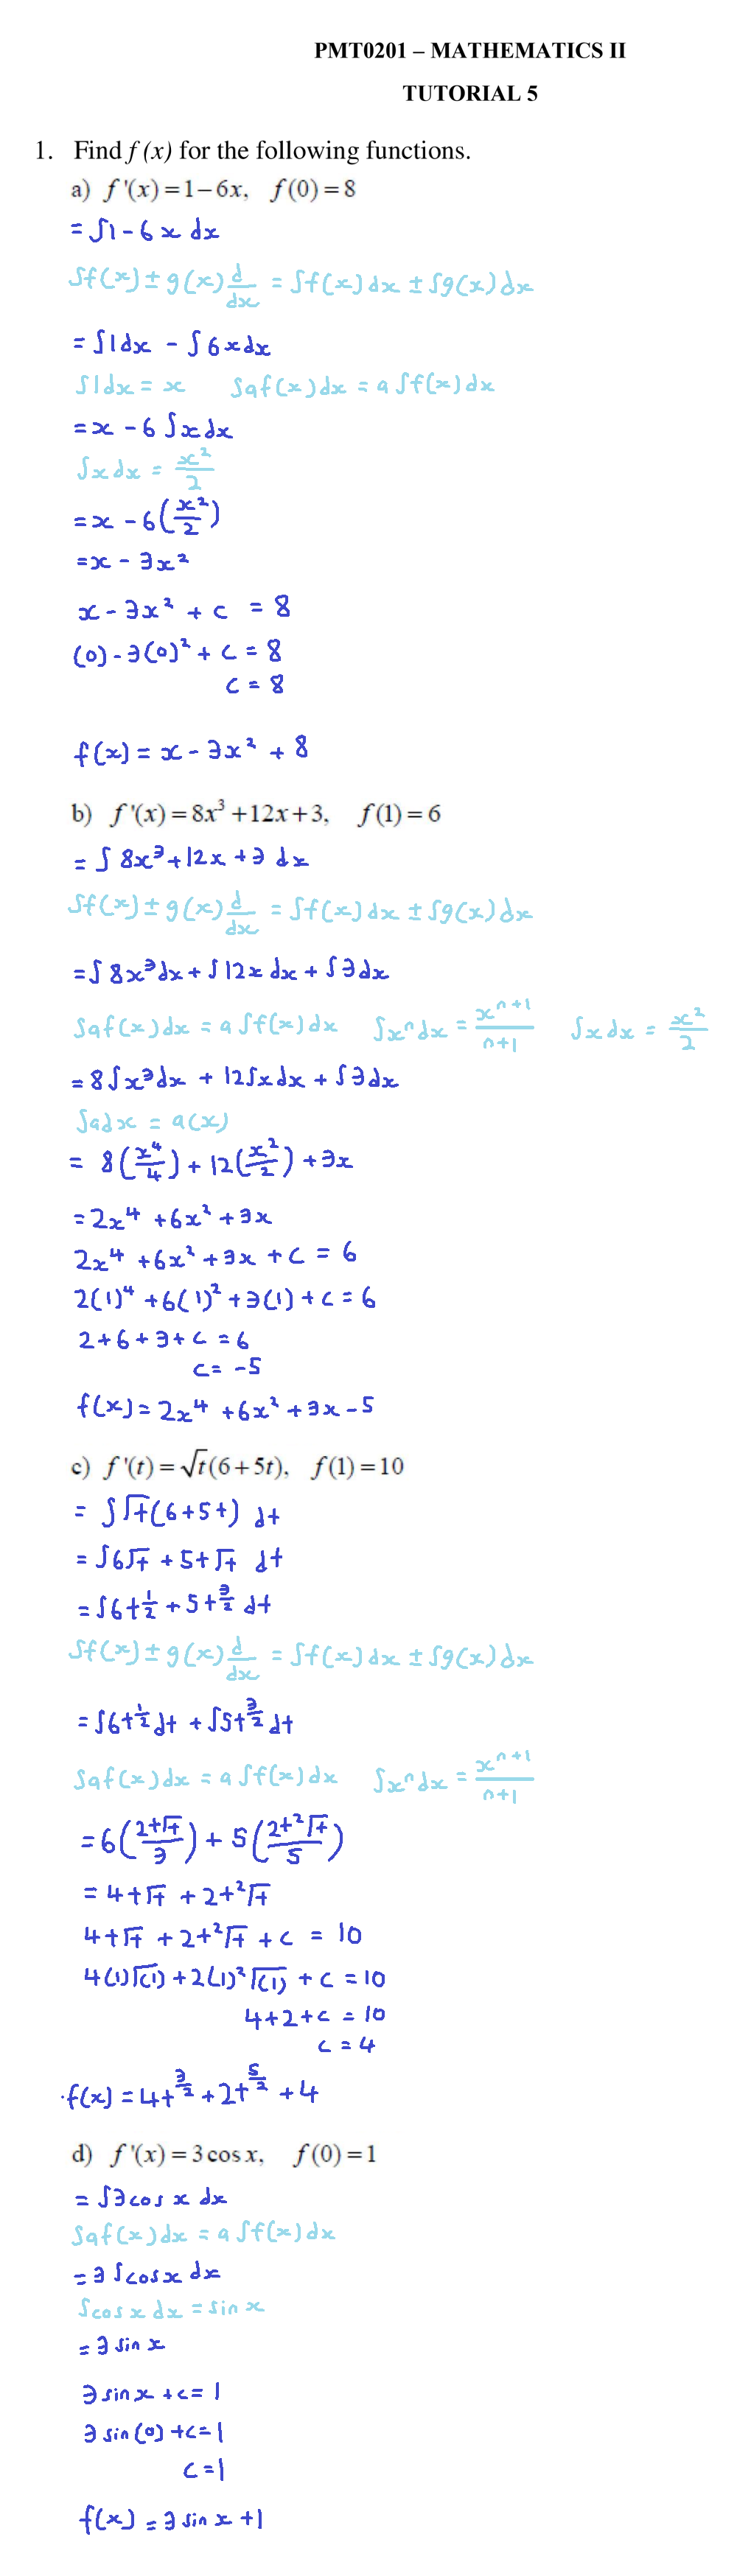 PMT0201 – MATHEMATICS II
TUTORIAL 5
1. Find f (x) for the following functions.
a) f '(x) = 1 − 6x, f(0) = 8
= ∫1 - 6x dx
∫f(x) ± g(x) d/dx = ∫f(x)dx ± ∫g(x)dx
= ∫1dx - ∫6xdx
∫1dx = x ∫af(x)dx = a∫f(x)dx
= x - 6∫xdx
∫xdx = x²/2
= x - 6(x²/2)
= x - 3x²
x - 3x² + c = 8
(0) - 3(0)² + c = 8
c = 8
f(x) = x - 3x² + 8
b) f '(x) = 8x³ + 12x + 3, f(1) = 6
= ∫8x³ + 12x + 3 dx
∫f(x) ± g(x) d/dx = ∫f(x)dx ± ∫g(x)dx
= ∫8x³dx + ∫12x dx + ∫3dx
∫af(x)dx = a∫f(x)dx ∫xⁿdx = xⁿ⁺¹/n+1 ∫xdx = x²/2
= 8∫x³dx + 12∫xdx + ∫3dx
∫adx = a(x)
= 8(x⁴/4) + 12(x²/2) + 3x
= 2x⁴ + 6x² + 3x
2x⁴ + 6x² + 3x + c = 6
2(1)⁴ + 6(1)² + 3(1) + c = 6
2 + 6 + 3 + c = 6
c = -5
f(x) = 2x⁴ + 6x² + 3x - 5
c) f '(t) = √t(6 + 5t), f(1) = 10
= ∫√t(6+5t) dt
= ∫6√t + 5t√t dt
= ∫6t^1/2 + 5t^3/2 dt
∫f(x) ± g(x) d/dx = ∫f(x)dx ± ∫g(x)dx
= ∫6t^1/2 dt + ∫5t^3/2 dt
∫af(x)dx = a∫f(x)dx ∫xⁿdx = xⁿ⁺¹/n+1
= 6(2t√t/3) + 5(2t²√t/5)
= 4t√t + 2t²√t
4t√t + 2t²√t + c = 10
4(1)√(1) + 2(1)²√(1) + c = 10
4 + 2 + c = 10
c = 4
f(x) = 4t^3/2 + 2t^5/2 + 4
d) f '(x) = 3 cos x, f(0) = 1
= ∫3cos x dx
∫af(x)dx = a∫f(x)dx
= 3∫cosx dx
∫cos x dx = sin x
= 3 sin x
3 sin x + c = 1
3 sin(0) + c = 1
c = 1
f(x) = 3 sin x + 1